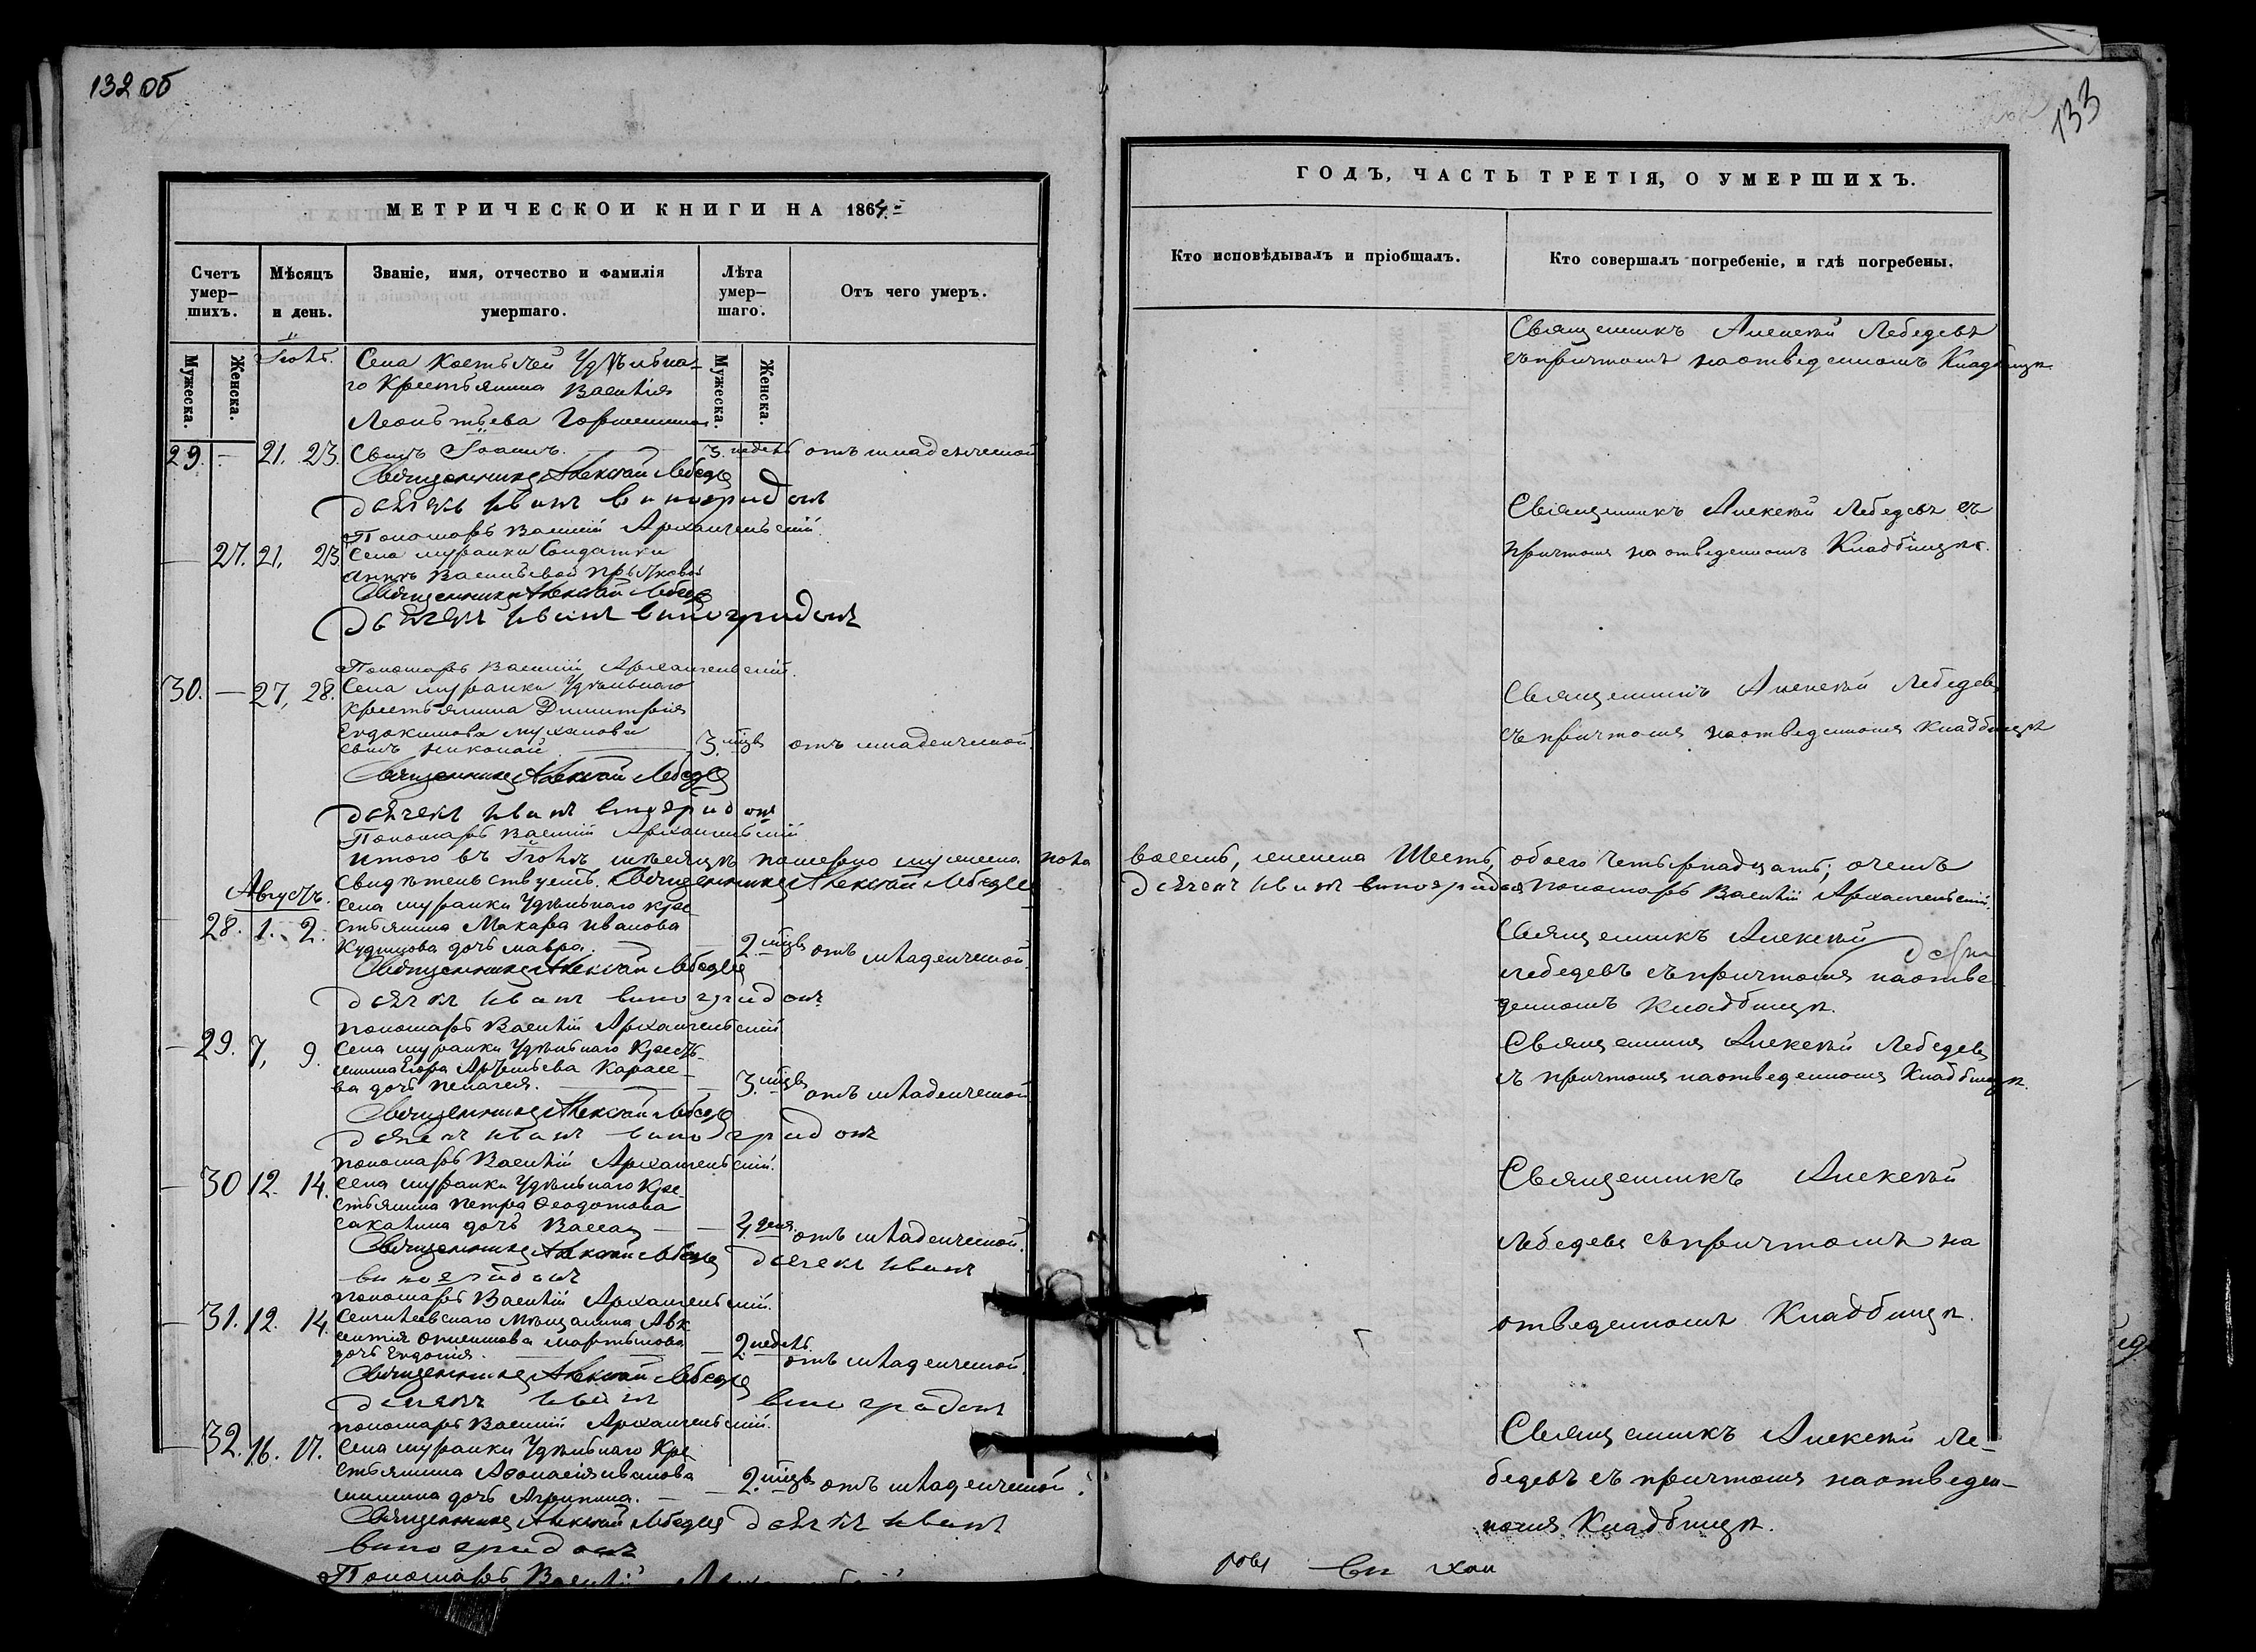 132 об
МЕТРИЧЕСКОЙ КНИГИ НА 1864.
Счетъ умер-шихъ.
Мѣсяцъ и день.
Званіе, имя, отчество и фамилія умершаго.
Лѣта умер-шаго.
Отъ чего умеръ.
Мужеска.
Женска.
Мужеска.
Женска.
Іюль.
Села Костычей Удѣльна-
го Крестьянина Василія
Леонтьева
29. — 21. 23. Сынъ Іоаннъ. 3. недѣль отъ младенческой
Священникъ Алексѣй Лебедев
Дьячекъ Иванъ Виноградовъ
Пономарь Василій Архангельскій.
— 27. 21, 23 Села Муранки Солдатки
Анны Васильевой
Священникъ Алексѣй Лебедев
Дьячекъ Иванъ Виноградовъ
Пономарь Василій Архангельскій.
30. — 27, 28. Села Муранки Удѣльнаго
Крестьянина Димитрія
Евдокимова Муханова
сынъ Николай 3. мцв отъ младенческой.
Священникъ Алексѣй Лебедев
Дьячекъ Иванъ Виноградовъ
Пономарь Василій Архангельскій
Итого въ Іюлѣ мѣсяцѣ померло мужеска пола
Свидѣтельствуетъ. Священникъ Алексѣй Лебедев
Августъ.
Села Муранки Удѣльнаго Кре-
— 28. 1. 2. стьянина Макара Иванова
Кудинова дочь Мавра. — 2. мцв отъ младенческой.
Священникъ Алексѣй Лебедев
Дьячекъ Иванъ Виноградовъ
Пономарь Василій Архангельскій
— 29. 7, 9. Села Муранки Удѣльнаго Кресть-
янина Егора Карасе-
ва дочь Пелагея. — 3. мцв отъ младенческой
Священникъ Алексѣй Лебедев
Дьячекъ Иванъ Виноградовъ
Пономарь Василій Архангельскій.
— 30 12. 14. Села Муранки Удѣльнаго Кре-
стьянина Петра Ѳеодотова
Сакалина дочь Васса — — дня. отъ младенческой.
Священникъ Алексѣй Лебедев Дьячекъ Иванъ
Виноградовъ
Пономарь Василій Архангельскій.
— 31. 12. 14. Сенгилеевскаго Мѣщанина Авк-
сентія Мартынова
дочь Евдокія. — 2. недѣль отъ младенческой.
Священникъ Алексѣй Лебедев
Дьячекъ Иванъ Виноградовъ
Пономарь Василій Архангельскій.
— 32. 16. 17. Села Муранки Удѣльнаго Кре-
стьянина Аѳонасія Иванова
дочь Агрипина. — — 2. мцв отъ младенческой.
Священникъ Алексѣй Лебедев Дьячекъ Иванъ
Виноградовъ
Пономарь Василій
133
ГОДЪ, ЧАСТЬ ТРЕТІЯ, О УМЕРШИХЪ.
Кто исповѣдывалъ и пріобщалъ.
Кто совершалъ погребеніе, и гдѣ погребены.
Священникъ Алексѣй Лебедевъ
съ причтомъ на отведенномъ Кладбищѣ.
Священникъ Алексѣй Лебедевъ съ
причтомъ на отведенномъ Кладбищѣ.
Священникъ Алексѣй Лебедевъ
съ причтомъ на отведенномъ Кладбищѣ
восемь, женска Шесть, обоего четырнадцать; о чемъ
Дьячекъ Иванъ Виноградовъ Пономарь Василій Архангельскій.
Священникъ Алексѣй
Лебедевъ съ причтомъ на отве-
денномъ Кладбищѣ.
Священникъ Алексѣй Лебедевъ
съ причтомъ на отведенномъ Кладбищѣ.
Священникъ Алексѣй
Лебедевъ съ причтомъ на
отведенномъ Кладбищѣ.
Священникъ Алексѣй Ле-
бедевъ съ причтомъ на отведен-
номъ Кладбищѣ.